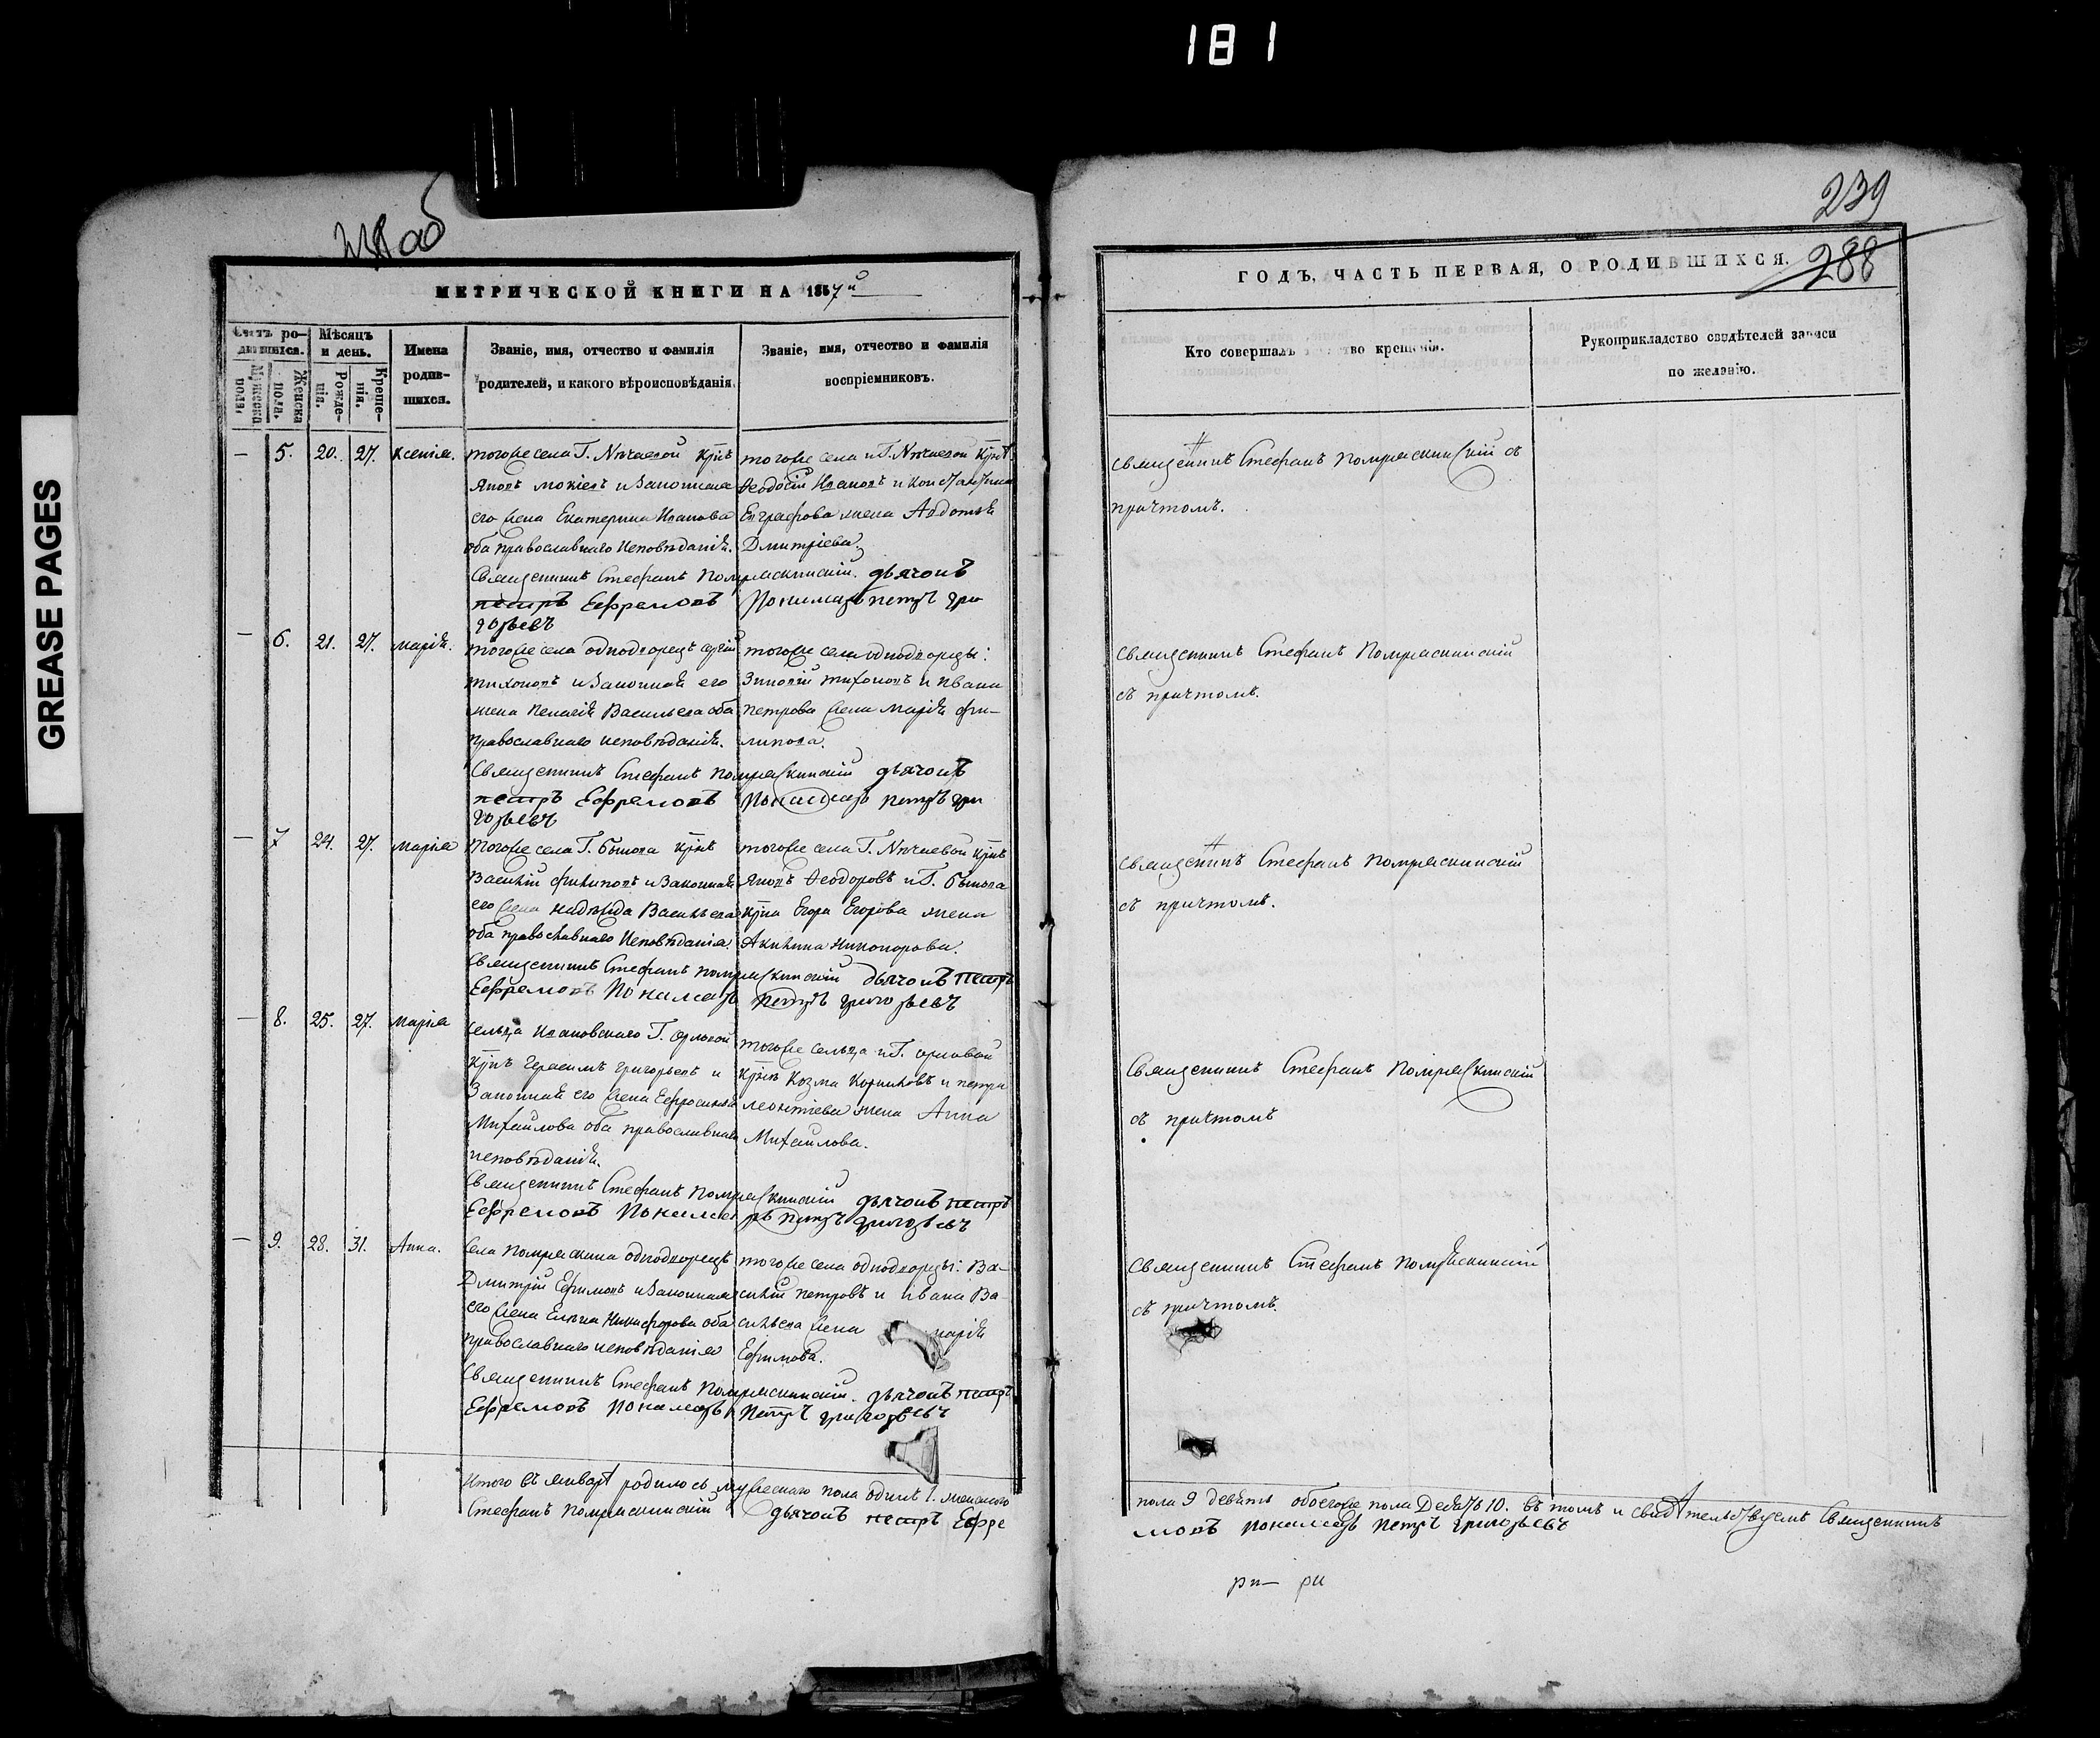 181
GREASE PAGES
об
239
288
МЕТРИЧЕСКОЙ КНИГИ НА 1857й
ГОДЪ, ЧАСТЬ ПЕРВАЯ, О РОДИВШИХСЯ.
Счетъ ро-
дившихся.
Мужеска пола.
Женска пола.
Мѣсяцъ
и день.
Рожде-
нія.
Креще-
нія.
Имена
родив-
шихся.
Званіе, имя, отчество и фамилія
родителей, и какого вѣроисповѣданія.
Званіе, имя, отчество и фамилія
воспріемниковъ.
Кто совершалъ во крещенія.
Рукоприкладство свидѣтелей записи
по желанію.
— 5. 20. 27. Ксенія.
тогоже села Г. Нѣчаевой крнъ
Яковъ Мокіевъ и Законная
его жена Екатерина Иванова
оба православнаго исповѣданія.
тогоже села и Г. Нѣчаевой крнѣ:
Ѳеодосій Ивановъ и Константина
Евграфова жена Авдотья
Дмитріева.
Священникъ Стефанъ дьячокъ
петръ Ефремовъ Пономарь петръ гри
горьевъ
Священникъ Стефанъ съ
причтомъ.
— 6. 21. 27. Марія.
тогоже села однодворецъ Сергій
тихоновъ и Законная его
жена Пелагія Васильева оба
православнаго исповѣданія.
тогоже села однодворцы:
Зиновій тихоновъ и Ивана
Петрова жена Марія Фи-
липова.
Священникъ Стефанъ дьячокъ
петръ Ефремовъ Пономарь петръ гри
горьевъ
Священникъ Стефанъ
съ причтомъ.
— 7 24. 27. Марія
Тогоже села Г. крнъ
Василій Филиповъ и Законная
его жена Надежда Васильева
оба православнаго исповѣданія.
тогоже села Г. Нѣчаевой крнъ
Яковъ Ѳеодоровъ и Г.
крна Егора Егорова жена
Акилина Никонорова.
Священникъ Стефанъ дьячокъ петръ
Ефремовъ Пономарь петръ григорьевъ
Священникъ Стефанъ
съ причтомъ.
— 8. 25. 27. Марія
сельца Ивановскаго Г. Орловой
крнъ Герасимъ Григорьевъ и
Законная его жена Ефросинья
Михайлова оба православнаго
исповѣданія.
тогоже сельца и Г. Орловой
крнѣ Козма и петра
леонтіева жена Анна
Михайлова.
Священникъ Стефанъ дьячокъ петръ
Ефремовъ Пономарь петръ григорьевъ
Священникъ Стефанъ
съ причтомъ
— 9. 28. 31. Анна.
Села однодворецъ
Дмитрій Ефимовъ и Законная
его жена Елена Никифорова оба
православнаго исповѣданія
тогоже села однодворцы: Ва-
силій петровъ и Ивана Ва-
сильева жена Марія
Ефимова.
Священникъ Стефанъ дьячокъ петръ
Ефремовъ Пономарь Петръ григорьевъ
Священникъ Стефанъ
съ причтомъ.
Итого въ январѣ родилось мужескаго пола одинъ 1. женскаго
пола 9 девять обоегоже пола Десять 10. въ томъ и свидѣтельствуемъ Священникъ
Стефанъ дьячокъ петръ Ефре
мовъ Пономарь Петръ григорьевъ